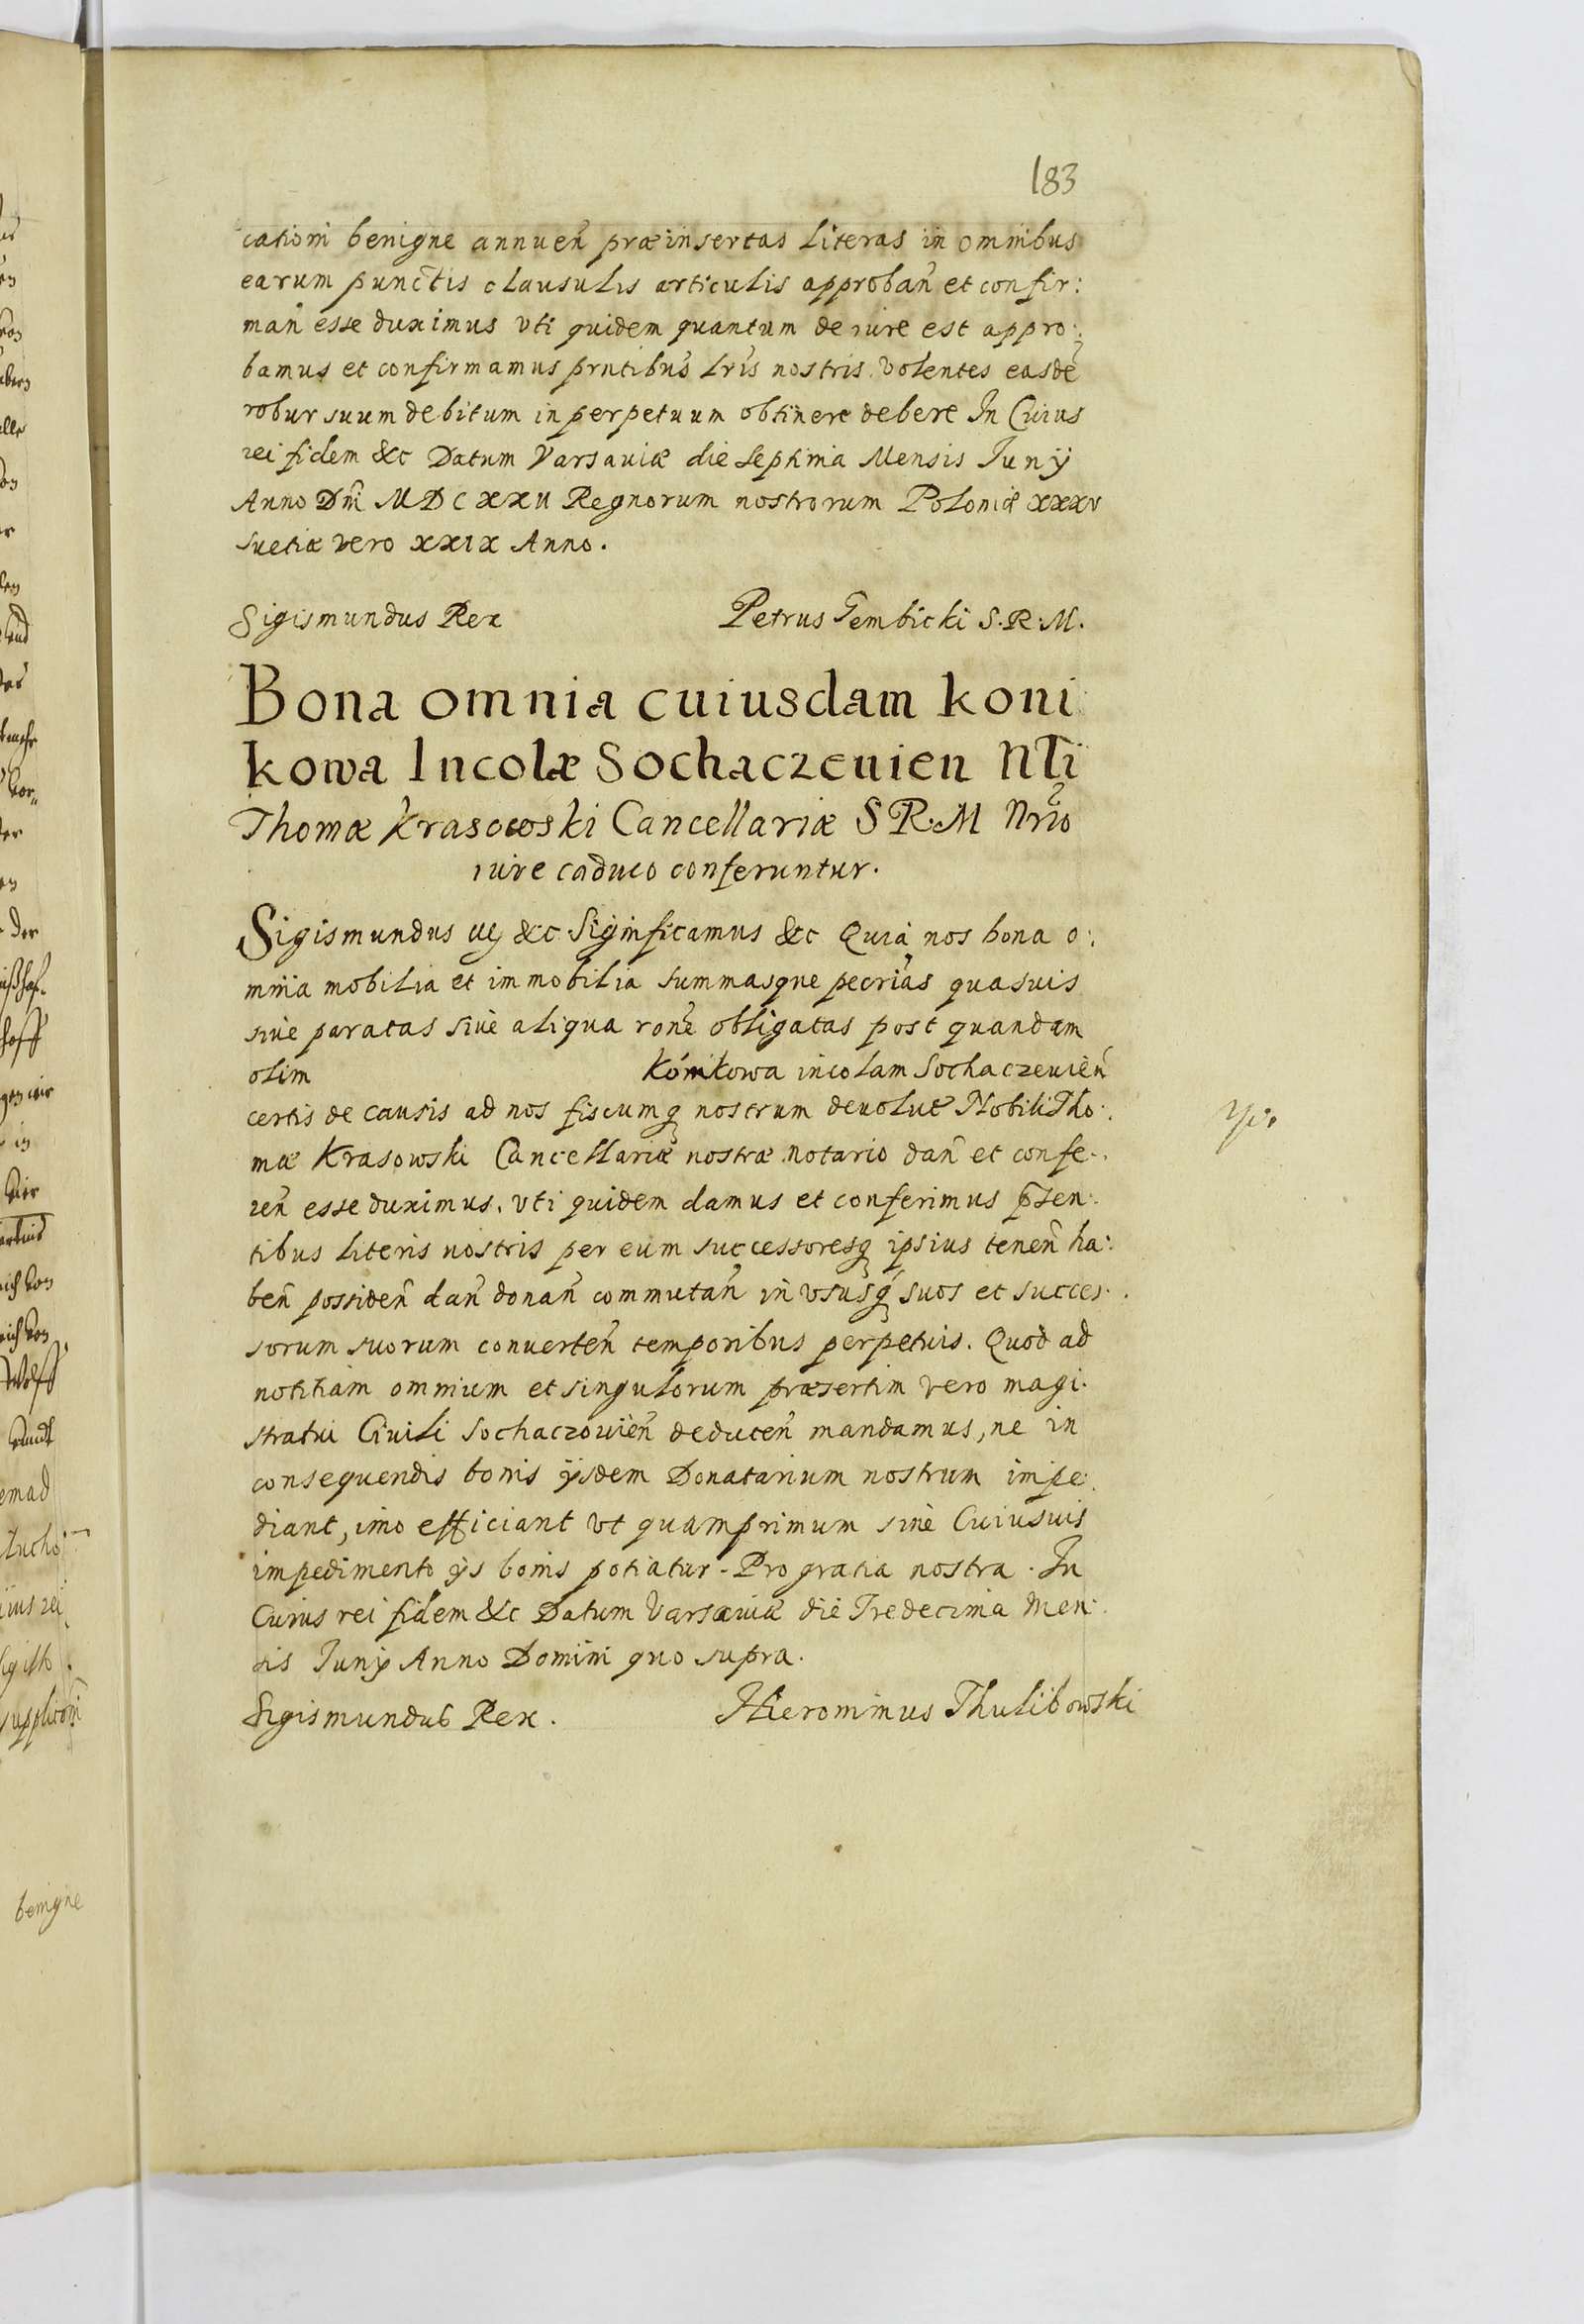 183
cationi benigne annueñ præinsertas literas in omnibus
earum punctis clausulis articulis approbañ et confir:
mañ esse duximus vti quidem quantum de iure est appro:
bamus et confirmamus prntibus lris nostris volentes easdẽ
robur suum debitum in perpetuum obtinere debere In Cuius
rei fidem &c Datum Varsauiæ die septima Mensis Iunÿ
Anno Dni MDCXXV Regnorum nostrorum Poloniæ XXXV
suetiæ vero XXIX Anno.
Sigismundus Rex Petrus Gembicki S.R.M.
Bona omnia cuiusdam koni
kowa Incolæ Sochaczeuien Nli
Thomæ Krasowski Cancellariæ S R.M Nrio
iure caduco conferuntur.
Sigismundus &c Significamus &c Quia nos bona o:
mnia mobilia et immobilia summasque pecrias quasuis
siue paratas siue aliqua rone obligatas post quandam
olim Konikowa incolam Sochaczeuień
certis de causis ad nos fiscumq nostrum deuolut Nobili Tho:
mæ Krasowski Cancellariæ nostræ notario dañ et confe:
reñ esse duximus. vti quidem damus et conferimus p̃sen:
tibus literis nostris per eum successoresq ipsius teneñ ha:
beñ possideñ dañ donañ commutañ in vsusq suos et succes:
sorum suorum conuerteñ temporibus perpetuis. Quod ad
notitiam omnium et singulorum præsertim vero magi:
stratui Ciuili Sochaczouień deduceñ mandamus, ne in
consequendis bonis ÿsdem Donatarium nostrum impe:
diant, imo efficiant vt quamprimum sine Cuiusuis
impedimento ÿs bonis potiatur. Pro gratia nostra. In
Cuius rei fidem &c Datum Varsauiæ die Tredecima Men:
sis Iunÿ Anno Domini quo supra.
Sigismundus Rex. Hieronimus Thulibowski
benigne